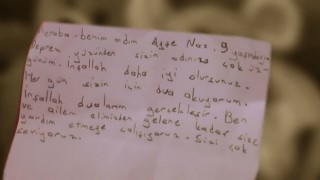 Meraba benim adım Ayşe Naz. 9 yaşındayım
Deprem yüzünden sizin adınıza çok üz-
günüm. İnşallah daha iyi olursunuz.
Her gün sizin için dua okuyorum.
İnşallah dualarım gerçekleşir. Ben
ve ailem elimizden gelene kadar size
yardım etmeye çalışıyoruz. Sizi çok
seviyoruz.